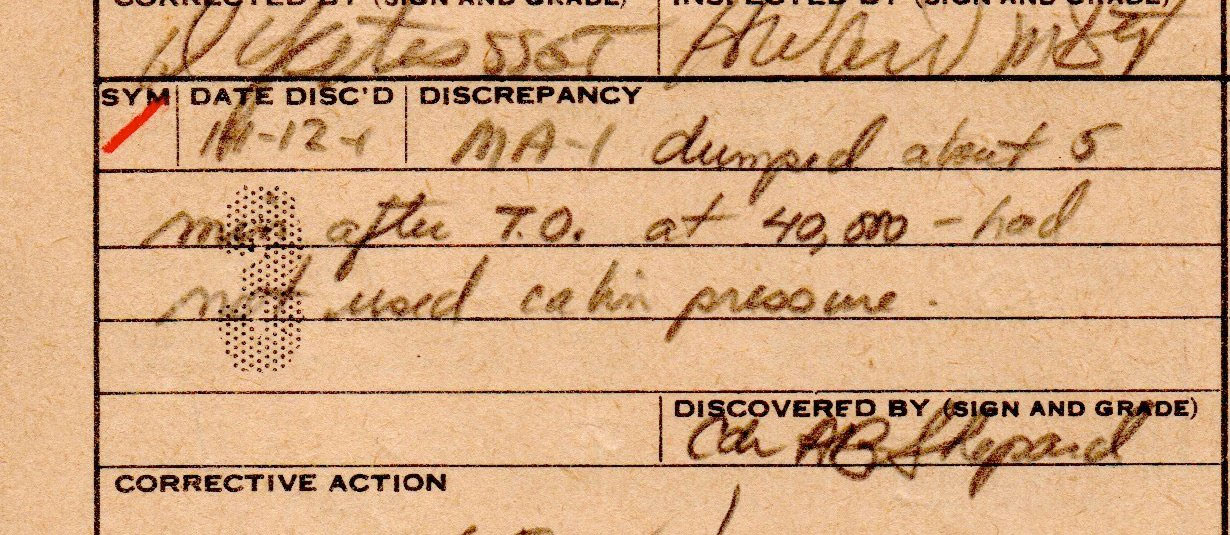 CORRECTED BY (SIGN AND GRADE) INSPECTED BY (SIGN AND GRADE)
D Yates SSGT MSGT
SYM DATE DISC'D DISCREPANCY
MA-1 dumped about 5
min after T.O. at 40,000 - had
not used cabin pressure.
DISCOVERED BY (SIGN AND GRADE)
Cdr AB Shepard
CORRECTIVE ACTION